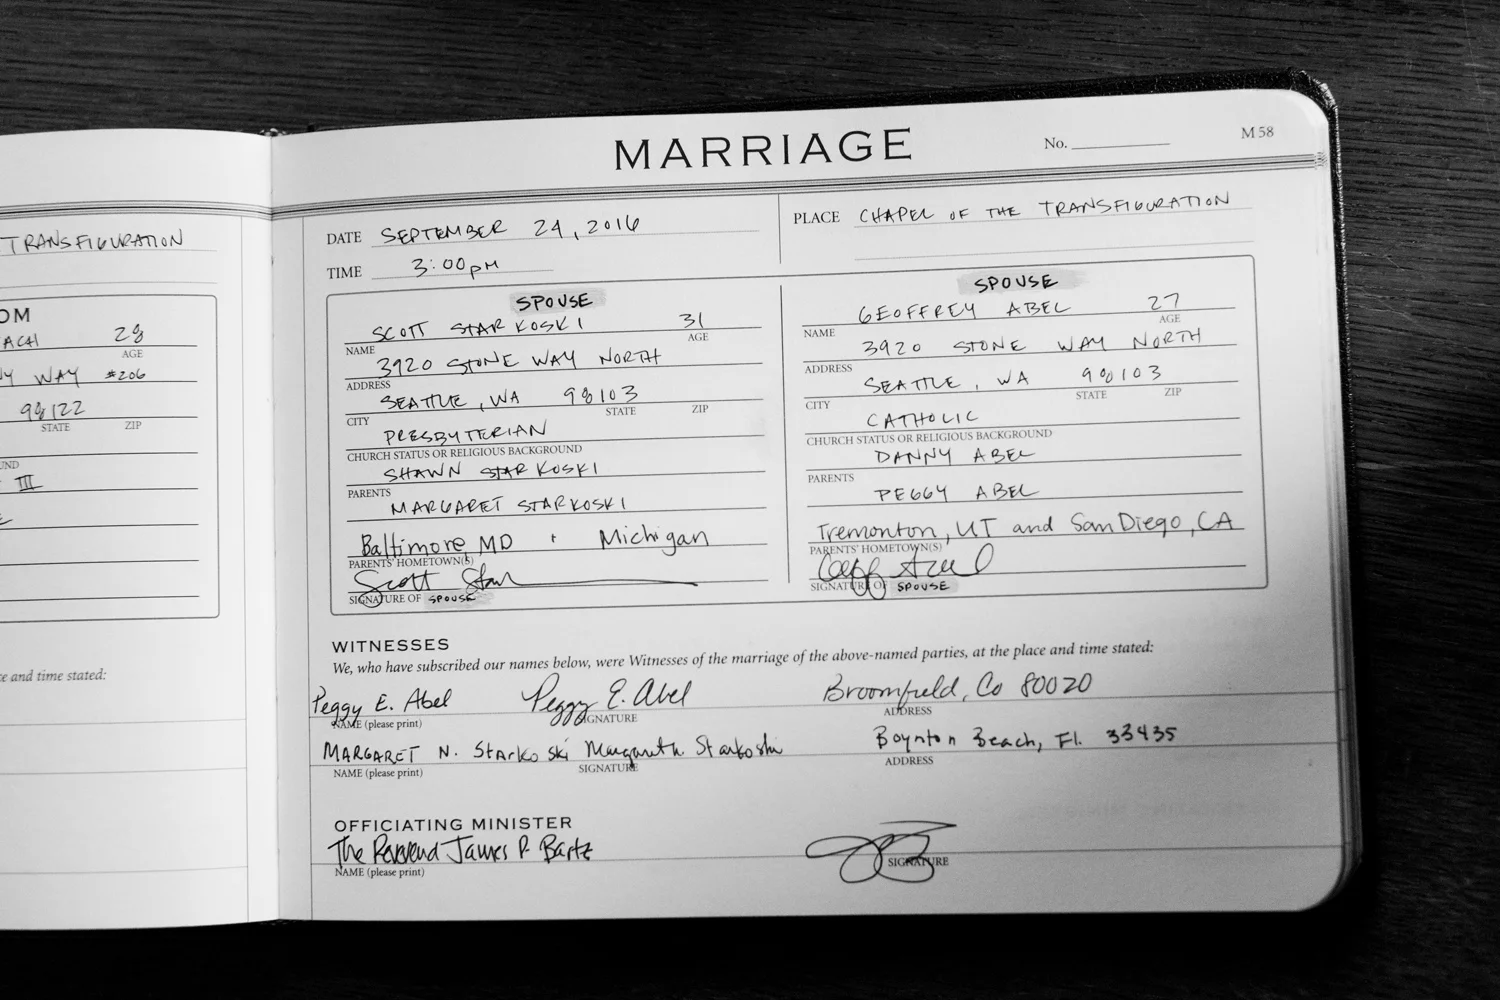 TRANSFIGURATION
OM
ACH 28
AGE
WAY #206
98122
STATE ZIP
UND
III
e and time stated:
MARRIAGE
No.
M 58
DATE SEPTEMBER 24, 2016
PLACE CHAPEL OF THE TRANSFIGURATION
TIME 3:00pm
SPOUSE
SCOTT STARKOSKI 31
NAME AGE
3920 STONE WAY NORTH
ADDRESS
SEATTLE, WA 98103
CITY STATE ZIP
PRESBYTERIAN
CHURCH STATUS OR RELIGIOUS BACKGROUND
SHAWN STARKOSKI
PARENTS
MARGARET STARKOSKI
Baltimore, MD + Michigan
PARENTS' HOMETOWN(S)
Scott Star
SIGNATURE OF SPOUSE
SPOUSE
GEOFFREY ABEL 27
NAME AGE
3920 STONE WAY NORTH
ADDRESS
SEATTLE, WA 98103
CITY STATE ZIP
CATHOLIC
CHURCH STATUS OR RELIGIOUS BACKGROUND
DANNY ABEL
PARENTS
PEGGY ABEL
Tremonton, UT and San Diego, CA
PARENTS' HOMETOWN(S)
SIGNATURE OF SPOUSE
WITNESSES
We, who have subscribed our names below, were Witnesses of the marriage of the above-named parties, at the place and time stated:
Peggy E. Abel Peggy E. Abel Broomfield, Co 80020
NAME (please print) SIGNATURE ADDRESS
MARGARET N. Starkoski Margaret n. Starkoski Boynton Beach, Fl. 33435
NAME (please print) SIGNATURE ADDRESS
OFFICIATING MINISTER
The Reverend James P. Bartz
NAME (please print) SIGNATURE